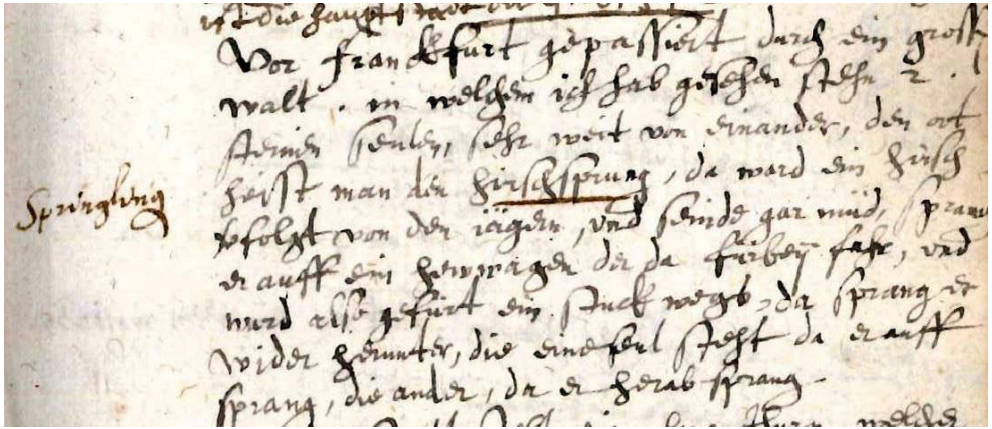 ist die haupt
Vor Franckfurt gepassiert durch ein gross
walt . in welchem ich hab gesehen stehn 2 .
steinen seulen, sehr weit von einander, den ort
heisst man den Hirschsprung, da ward ein hirsch
Springling
verfolgt von den jägern, und seinde gar müd, sprang
er auff ein hewwagen der da fürbey fuhr, und
ward also gefürt ein stuck wegs, da sprang er
wider herunter, die eine seul steht da er auff
sprang, die ander, da er herab sprang